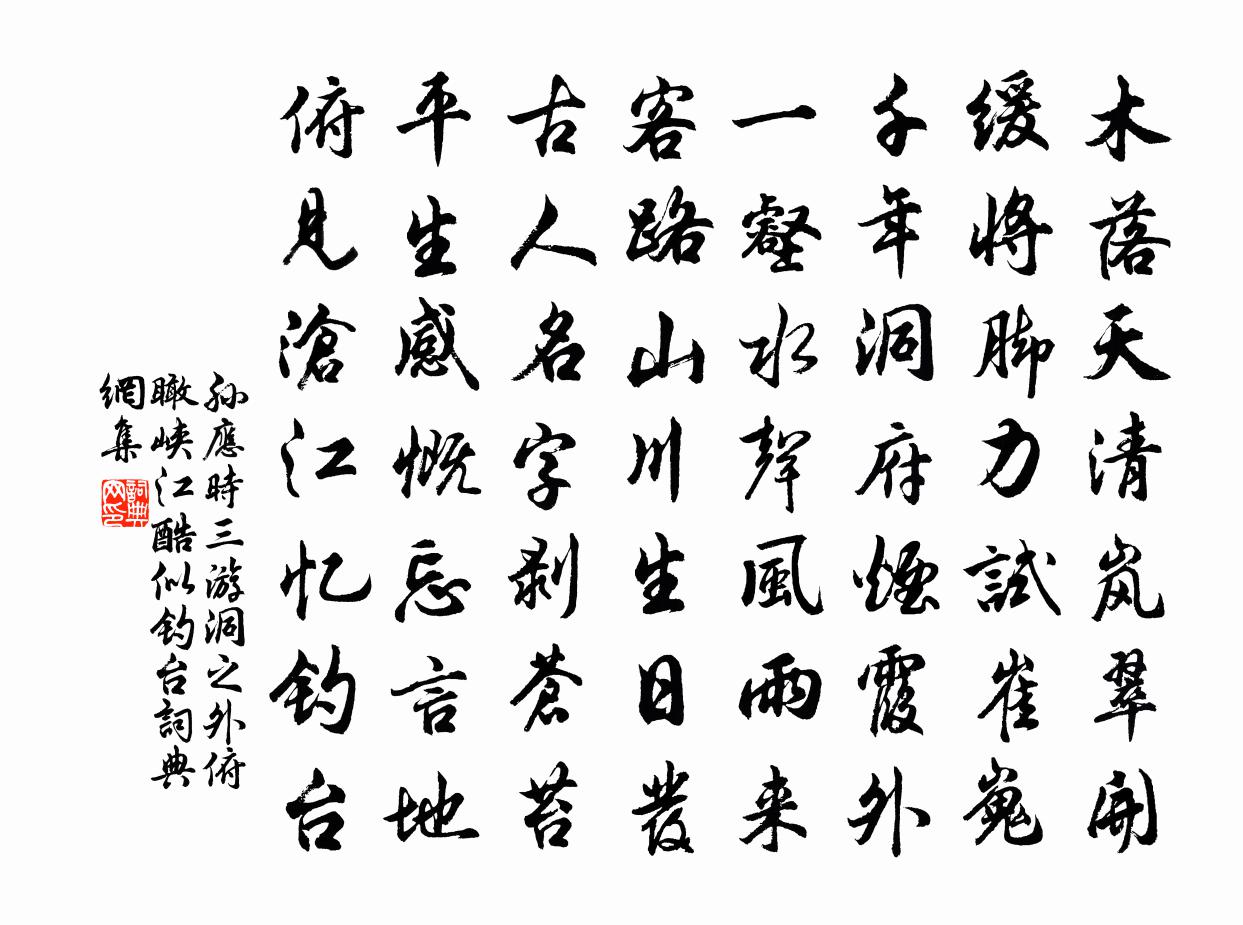 木落天清岚翠開
缓将脚力試崔嵬
千年洞府煙霞外
一壑水聲風雨来
客路山川生日發
古人名字剥蒼苔
平生感慨忘言地
俯見滄江忆钓台
孙應時三游洞之外俯
瞰峡江酷似钓台詞典
網集
詞典
网印